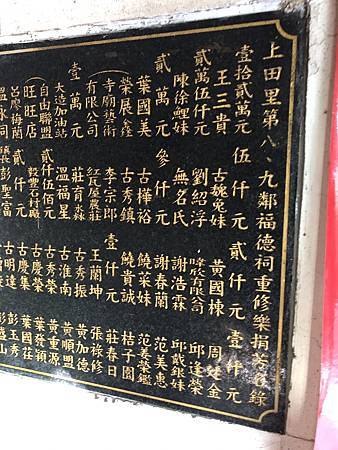 上田里第八、九鄰福德祠重修樂捐芳名錄
壹拾貳萬元 伍仟元 貳仟元 壹仟元
王三貴 古魏兔妹 黃國棟
貳萬伍仟元 劉紹浮
陳徐鯉妹 無名氏 謝浩霖 邱逢榮
貳萬元 參仟元 謝春蘭 邱戴銀妹
葉國美 古樺裕 饒菜妹 范美惠
榮展窪 古秀鎮 饒貴誠 范姜榮鑑
寺廟藝術 李宗郎 壹仟元 桔子園
有限公司 紅瓦屋農莊 王蘭坤 莊春日
壹萬元 莊育水 古秀振 張祿修
大造加油站 溫福星 古淮南 黃加德
自由聯盟 貳仟伍佰元 古秀榮 黃順盟
旺旺店 古慶榮 黃重源
呂廖梅蘭 貳仟元 古慶集 葉發穎
溫永祠 彭聖富 古明達 葉國莊
彭玉秀